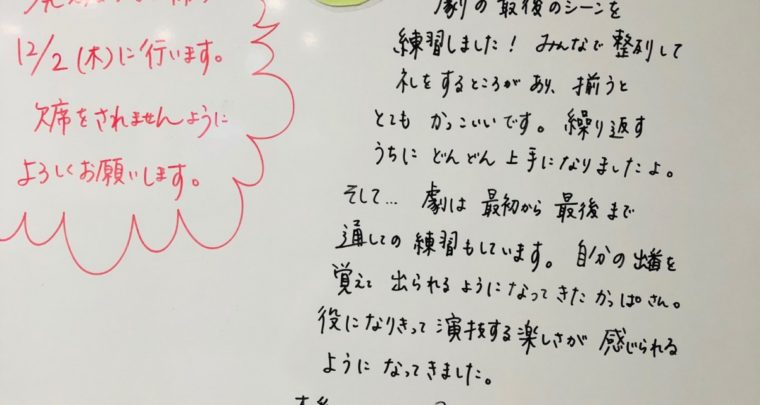 12/2(木)に行います。
欠席をされませんように
よろしくお願いします。
劇の最後のシーンを
練習しました！みんなで整列して
礼をするところがあり、揃うと
とても かっこいいです。繰り返す
うちに どんどん 上手になりましたよ。
そして… 劇は 最初から 最後 まで
通しての 練習もしています。自分の 出番を
覚えて 出られる ようになって きた かっぱさん。
役になりきって 演技する 楽しさが 感じられる
ように なってきました。